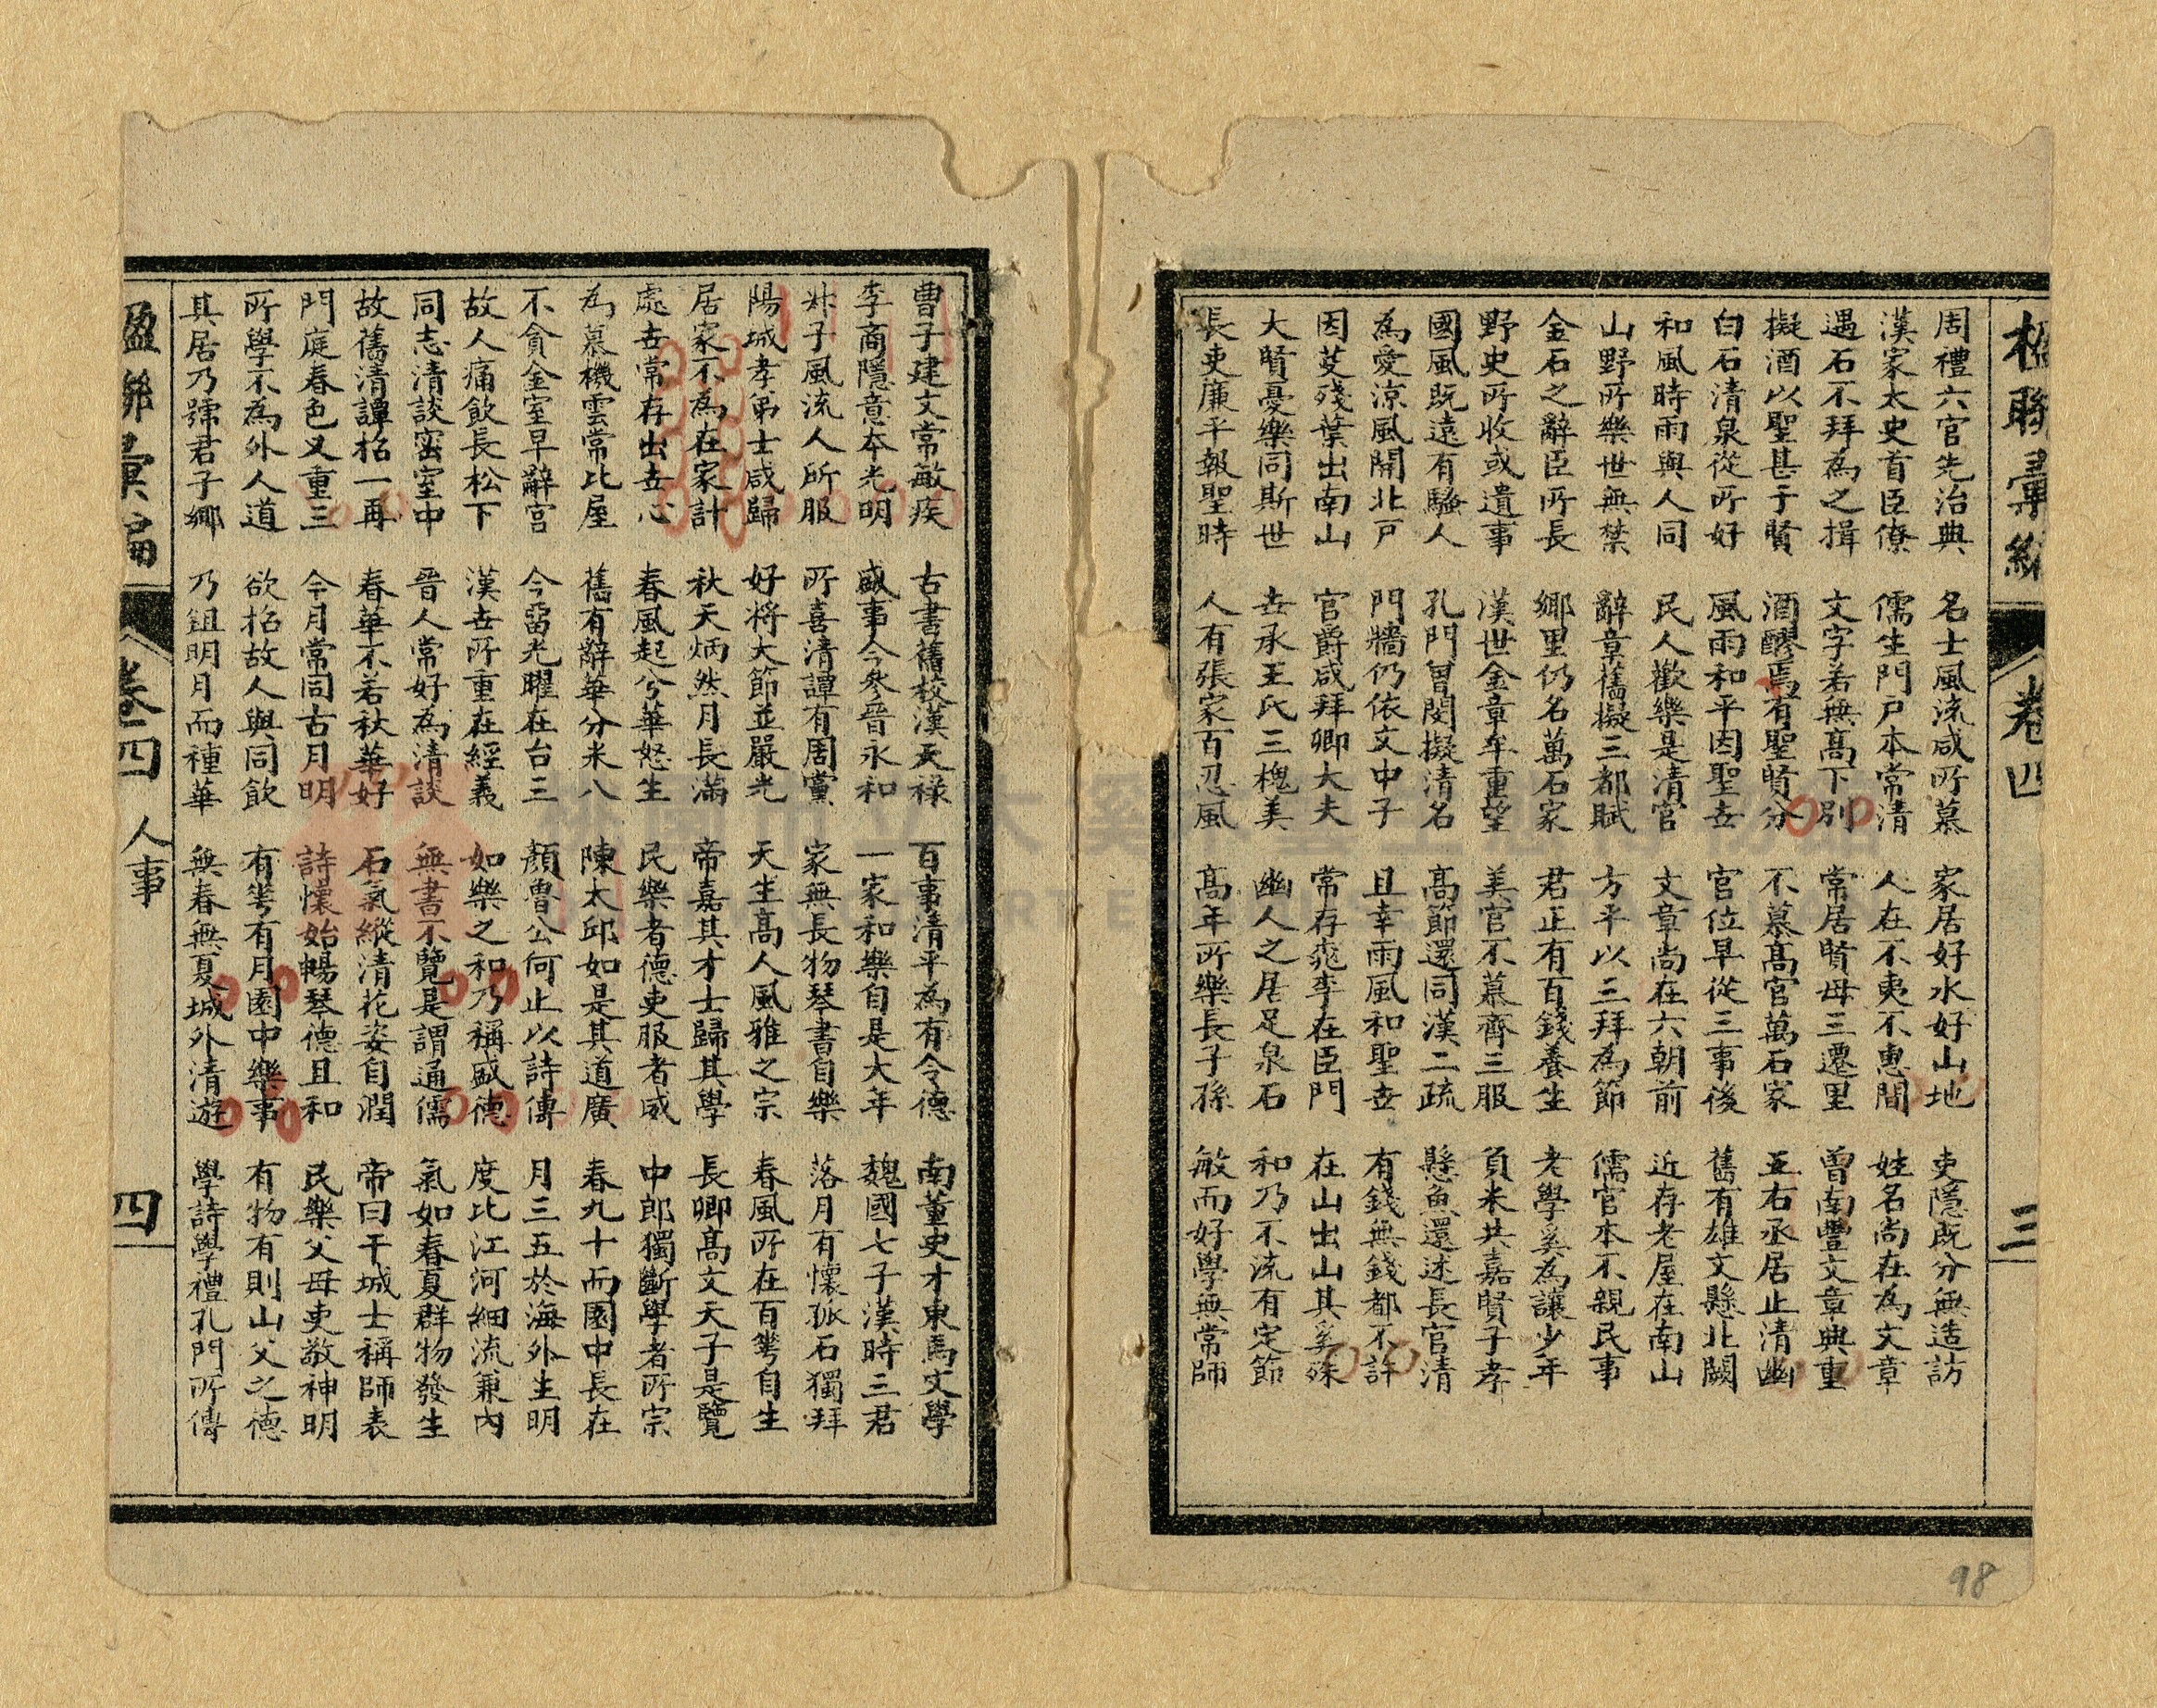 楹聯彙編 卷四 三
周禮六官先治典 名士風流咸所慕 家居好水好山地 吏隱既分無造訪
漢家太史首臣僚 儒生門戶本常清 人在不夷不惠間 姓名尚在為文章
遇石不拜為之揖 文字若無高下別 常居賢母三遷里 曾南豐文章典重
擬酒以聖甚于賢 酒醪焉有聖賢分 不慕高官萬石家 王右丞居止清幽
白石清泉從所好 風雨和平因聖世 官位早從三事後 舊有雄文懸北闕
和風時雨與人同 民人歡樂是清官 文章尚在六朝前 近存老屋在南山
山野所樂世無禁 辭章舊擬三都賦 方平以三拜為節 儒官本不親民事
金石之辭臣所長 鄉里仍名萬石家 君正有百錢養生 老學奚為讓少年
野史所收或遺事 漢世金章年重望 美官不慕齊三服 負米共嘉賢子孝
國風既遠有騷人 孔門曾閔擬清名 高節還同漢二疏 懸魚還述長官清
為愛涼風開北戶 門牆仍依文中子 且幸雨風和聖世 有錢無錢都不許
因芟殘葉出南山 官爵咸拜卿大夫 常存桃李在臣門 在山出山其奚殊
大賢憂樂同斯世 世承王氏三槐美 幽人之居足泉石 和乃不流有定節
長吏廉平報聖時 人有張家百忍風 高年所樂長子孫 敏而好學無常師
98
曹子建文常敏疾 古書舊校漢天祿 百事清平為有令德 南董史才東馬文學
李商隱意本光明 盛事今參晉永和 一家和樂自是大年 魏國七子漢時三君
叔子風流人所服 所喜清譚有周黨 家無長物琴書自樂 落月有懷孤石獨拜
陽城孝弟士咸歸 好將大節並嚴光 天生高人風雅之宗 春風所在百萼自生
居家不為在家計 秋天炳然月長滿 帝嘉其才士歸其學 長卿高文天子是覽
處世常存出世心 春風起兮華怒生 民樂者德吏服者威 中郎獨斷學者所宗
為慕機雲常比屋 舊有辭華分米八 陳太邱如是其道廣 春九十而園中長在
不貪金室早辭官 今留光曜在台三 顏魯公何止以詩傳 月三五於海外生明
故人痛飲長松下 漢世所重在經義 如樂之和乃稱盛德 度比江河細流兼內
同志清談密室中 晉人常好為清談 無書不覽是謂通儒 氣如春夏群物發生
故舊清譚招一再 春華不若秋華好 石氣縱清花姿自潤 帝曰干城士稱師表
門庭春色又重三 今月常同古月明 詩懷始暢琴德且和 民樂父母吏敬神明
所學不為外人道 欲招故人與同飲 有萼有月園中樂事 有物有則山父之德
其居乃號君子鄉 乃鉏明月而種華 無春無夏城外清遊 學詩學禮孔門所傳
楹聯彙編 卷四 人事 四